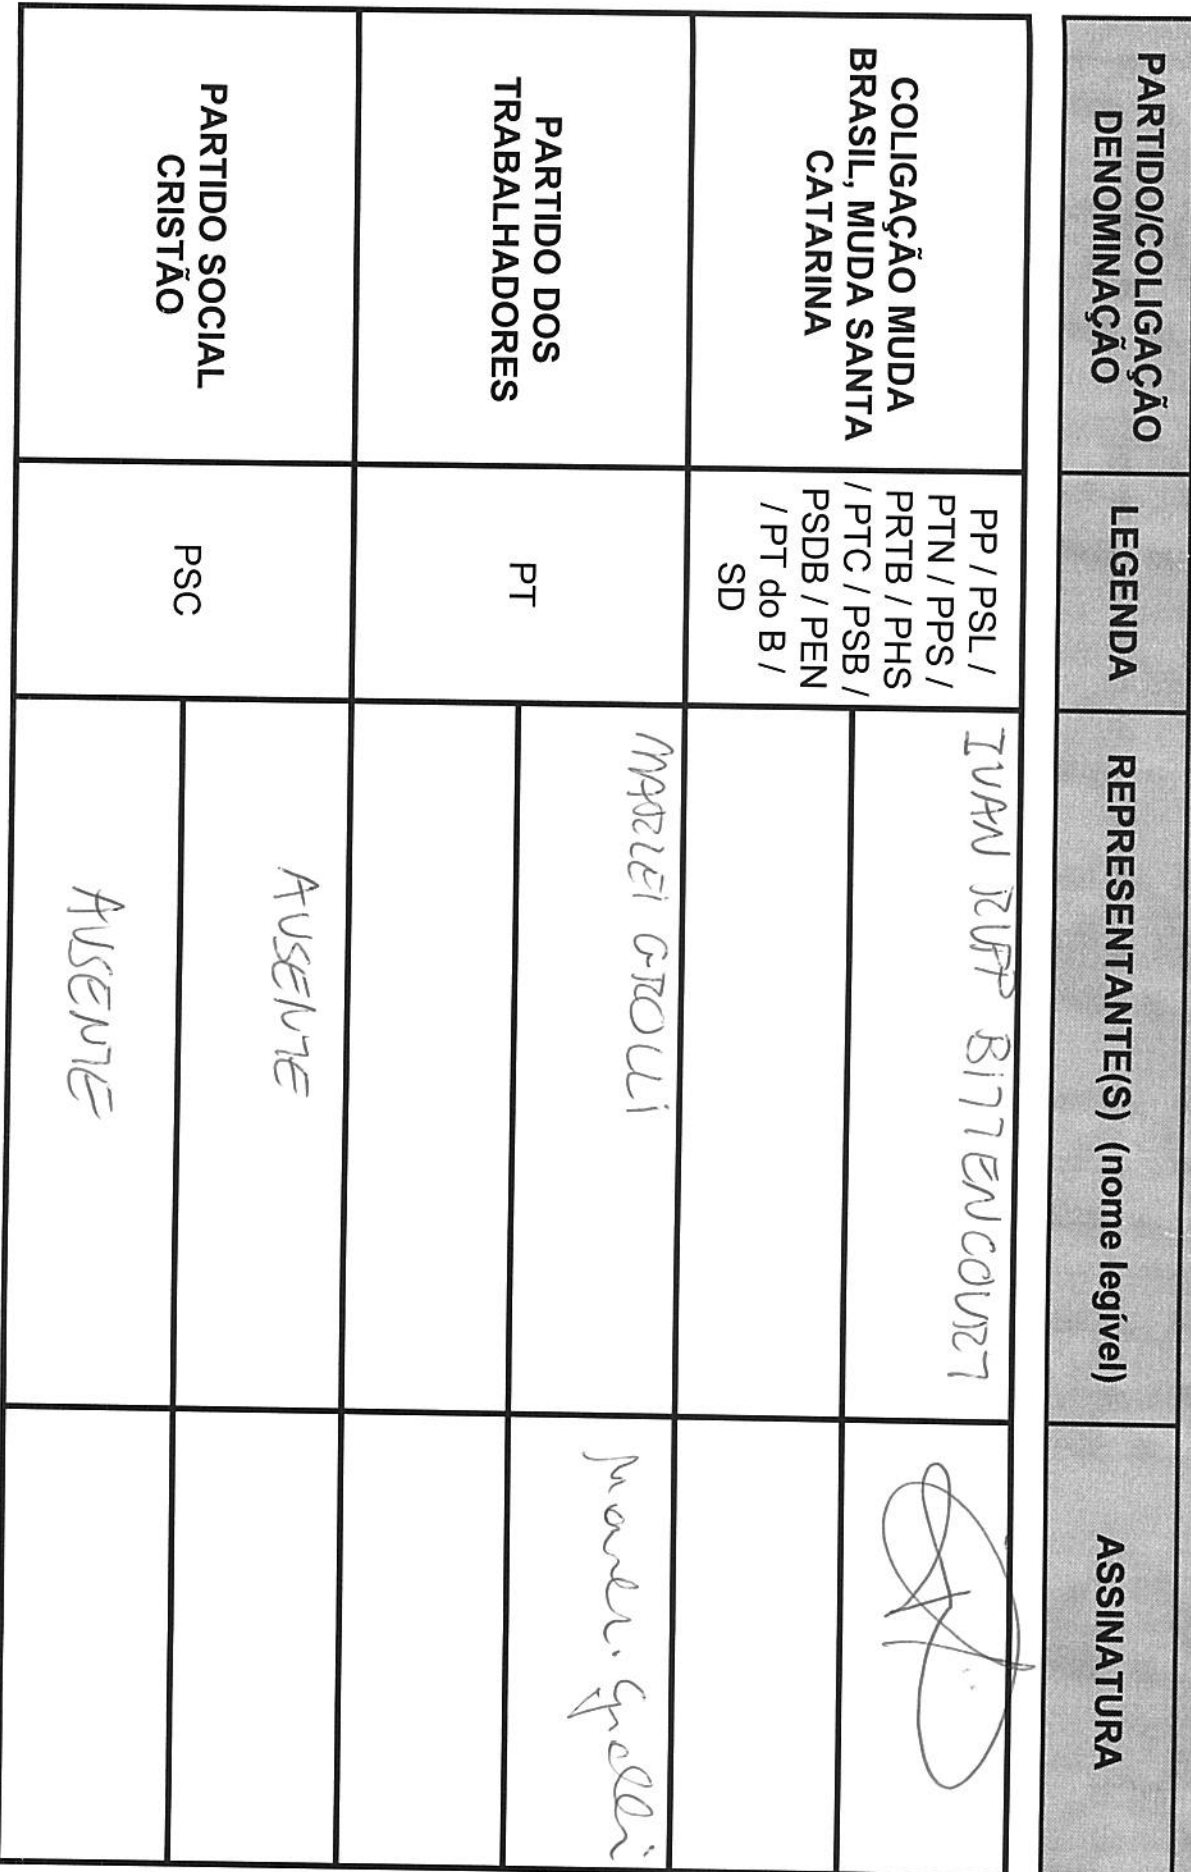 PARTIDO/COLIGAÇÃO
DENOMINAÇÃO
LEGENDA
REPRESENTANTE(S) (nome legível)
ASSINATURA
COLIGAÇÃO MUDA
BRASIL, MUDA SANTA
CATARINA
PP / PSL /
PTN / PPS /
PRTB / PHS
/ PTC / PSB /
PSDB / PEN
/ PT do B /
SD
IVAN RUPP BITTENCOURT
PARTIDO DOS
TRABALHADORES
PT
MARLEI GROLLI
Marlei Grolli
PARTIDO SOCIAL
CRISTÃO
PSC
AUSENTE
AUSENTE